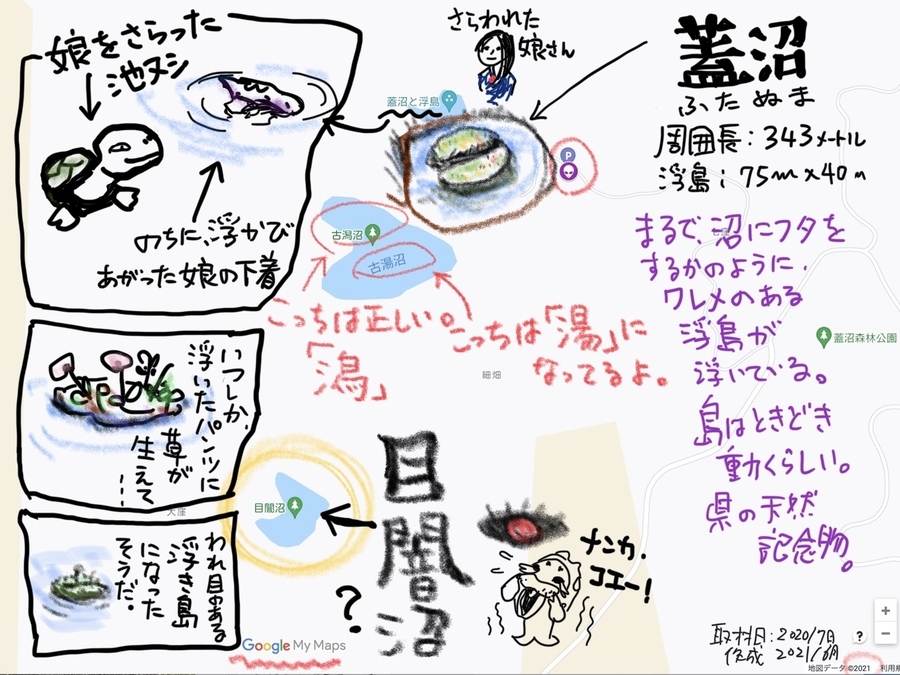 蓋沼
ふたぬま
周囲長:343メートル
浮島;75m×40m
まるで、沼にフタを
するかのように、
ワレメのある
浮島が
浮いている。
島はときどき
動くらしい。
県の天然
記念物。
さらわれた
娘さん
娘をさらった
池ヌシ
のちに、浮かび
あがった娘の下着
いつしか、
浮いたパンツに
草が
生えて
…
われ目のある
浮き島
になった
そうだ。
蓋沼と浮島
P
古潟沼
古湯沼
こっちは正しい。
「潟」
こっちは「湯」に
なってるよ。
細畑
蓋沼森林公園
大窪
目闇沼
目闇沼
?
ナンカ、
コエー!
取材日:2020/7月
作成 2021/6月
Google My Maps
+
?
−
地図データ ©2021 利用規